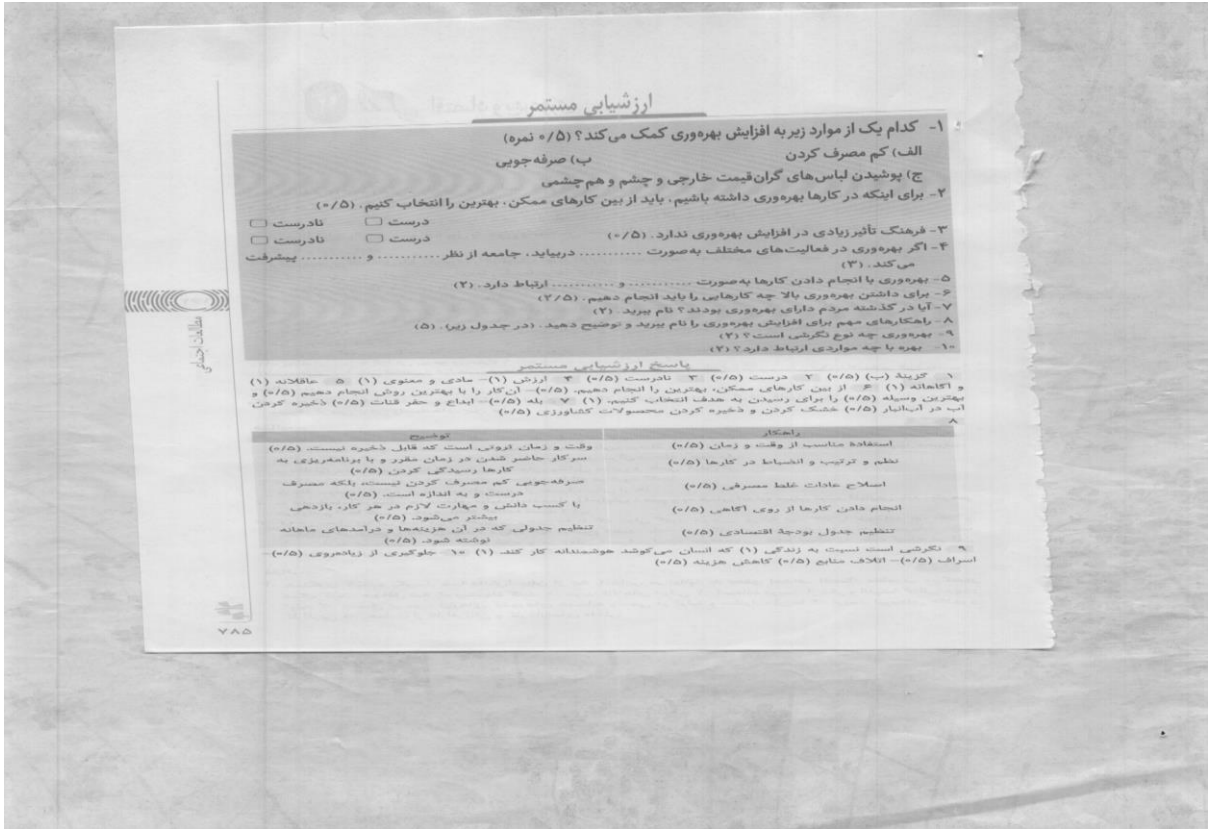 ارزشیابی مستمر
۱- کدام یک از موارد زیر به افزایش بهره‌وری کمک می‌کند؟ (۰/۵ نمره)
الف) کم مصرف کردن ب) صرفه‌جویی
ج) پوشیدن لباس‌های گران‌قیمت خارجی و چشم و هم‌چشمی
۲- برای اینکه در کارها بهره‌وری داشته باشیم، باید از بین کارهای ممکن، بهترین را انتخاب کنیم. (۰/۵)
درست نادرست
۳- فرهنگ تأثیر زیادی در افزایش بهره‌وری ندارد. (۰/۵) درست نادرست
۴- اگر بهره‌وری در فعالیت‌های مختلف به‌صورت ........... دربیاید، جامعه از نظر ........... و ........... پیشرفت
می‌کند. (۳)
۵- بهره‌وری با انجام دادن کارها به‌صورت ........... و ........... ارتباط دارد. (۲)
۶- برای داشتن بهره‌وری بالا چه کارهایی را باید انجام دهیم. (۲/۵)
۷- آیا در گذشته مردم دارای بهره‌وری بودند؟ نام ببرید. (۲)
۸- راهکارهای مهم برای افزایش بهره‌وری را نام ببرید و توضیح دهید. (در جدول زیر). (۵)
۹- بهره‌وری چه نوع نگرشی است؟ (۲)
۱۰- بهره با چه مواردی ارتباط دارد؟ (۲)
پاسخ ارزشیابی مستمر
۱ گزینهٔ (ب) (۰/۵) ۲ درست (۰/۵) ۳ نادرست (۰/۵) ۴ ارزش (۱)- مادی و معنوی (۱) ۵ عاقلانه (۱)
و آگاهانه (۱) ۶ از بین کارهای ممکن، بهترین را انجام دهیم. (۰/۵)- آن کار را با بهترین روش انجام دهیم (۰/۵) و
بهترین وسیله (۰/۵) را برای رسیدن به هدف انتخاب کنیم. (۱) ۷ بله (۰/۵)- ابداع و حفر قنات (۰/۵) ذخیره کردن
آب در آب‌انبار (۰/۵) خشک کردن و ذخیره کردن محصولات کشاورزی (۰/۵)
۸
راهکار توضیح
استفادهٔ مناسب از وقت و زمان (۰/۵) وقت و زمان ثروتی است که قابل ذخیره نیست. (۰/۵)
نظم و ترتیب و انضباط در کارها (۰/۵) سرکار حاضر شدن در زمان مقرر و با برنامه‌ریزی به
کارها رسیدگی کردن (۰/۵)
اصلاح عادات غلط مصرفی (۰/۵) صرفه‌جویی کم مصرف کردن نیست، بلکه مصرف
درست و به اندازه است. (۰/۵)
انجام دادن کارها از روی آگاهی (۰/۵) با کسب دانش و مهارت لازم در هر کار، بازدهی
بیشتر می‌شود. (۰/۵)
تنظیم جدول بودجهٔ اقتصادی (۰/۵) تنظیم جدولی که در آن هزینه‌ها و درآمدهای ماهانه
نوشته شود. (۰/۵)
۹ نگرشی است نسبت به زندگی (۱) که انسان می‌کوشد هوشمندانه کار کند. (۱) ۱۰ جلوگیری از زیاده‌روی (۰/۵)-
اسراف (۰/۵)- اتلاف منابع (۰/۵) کاهش هزینه (۰/۵)
مطالعات اجتماعی
۷۸۵